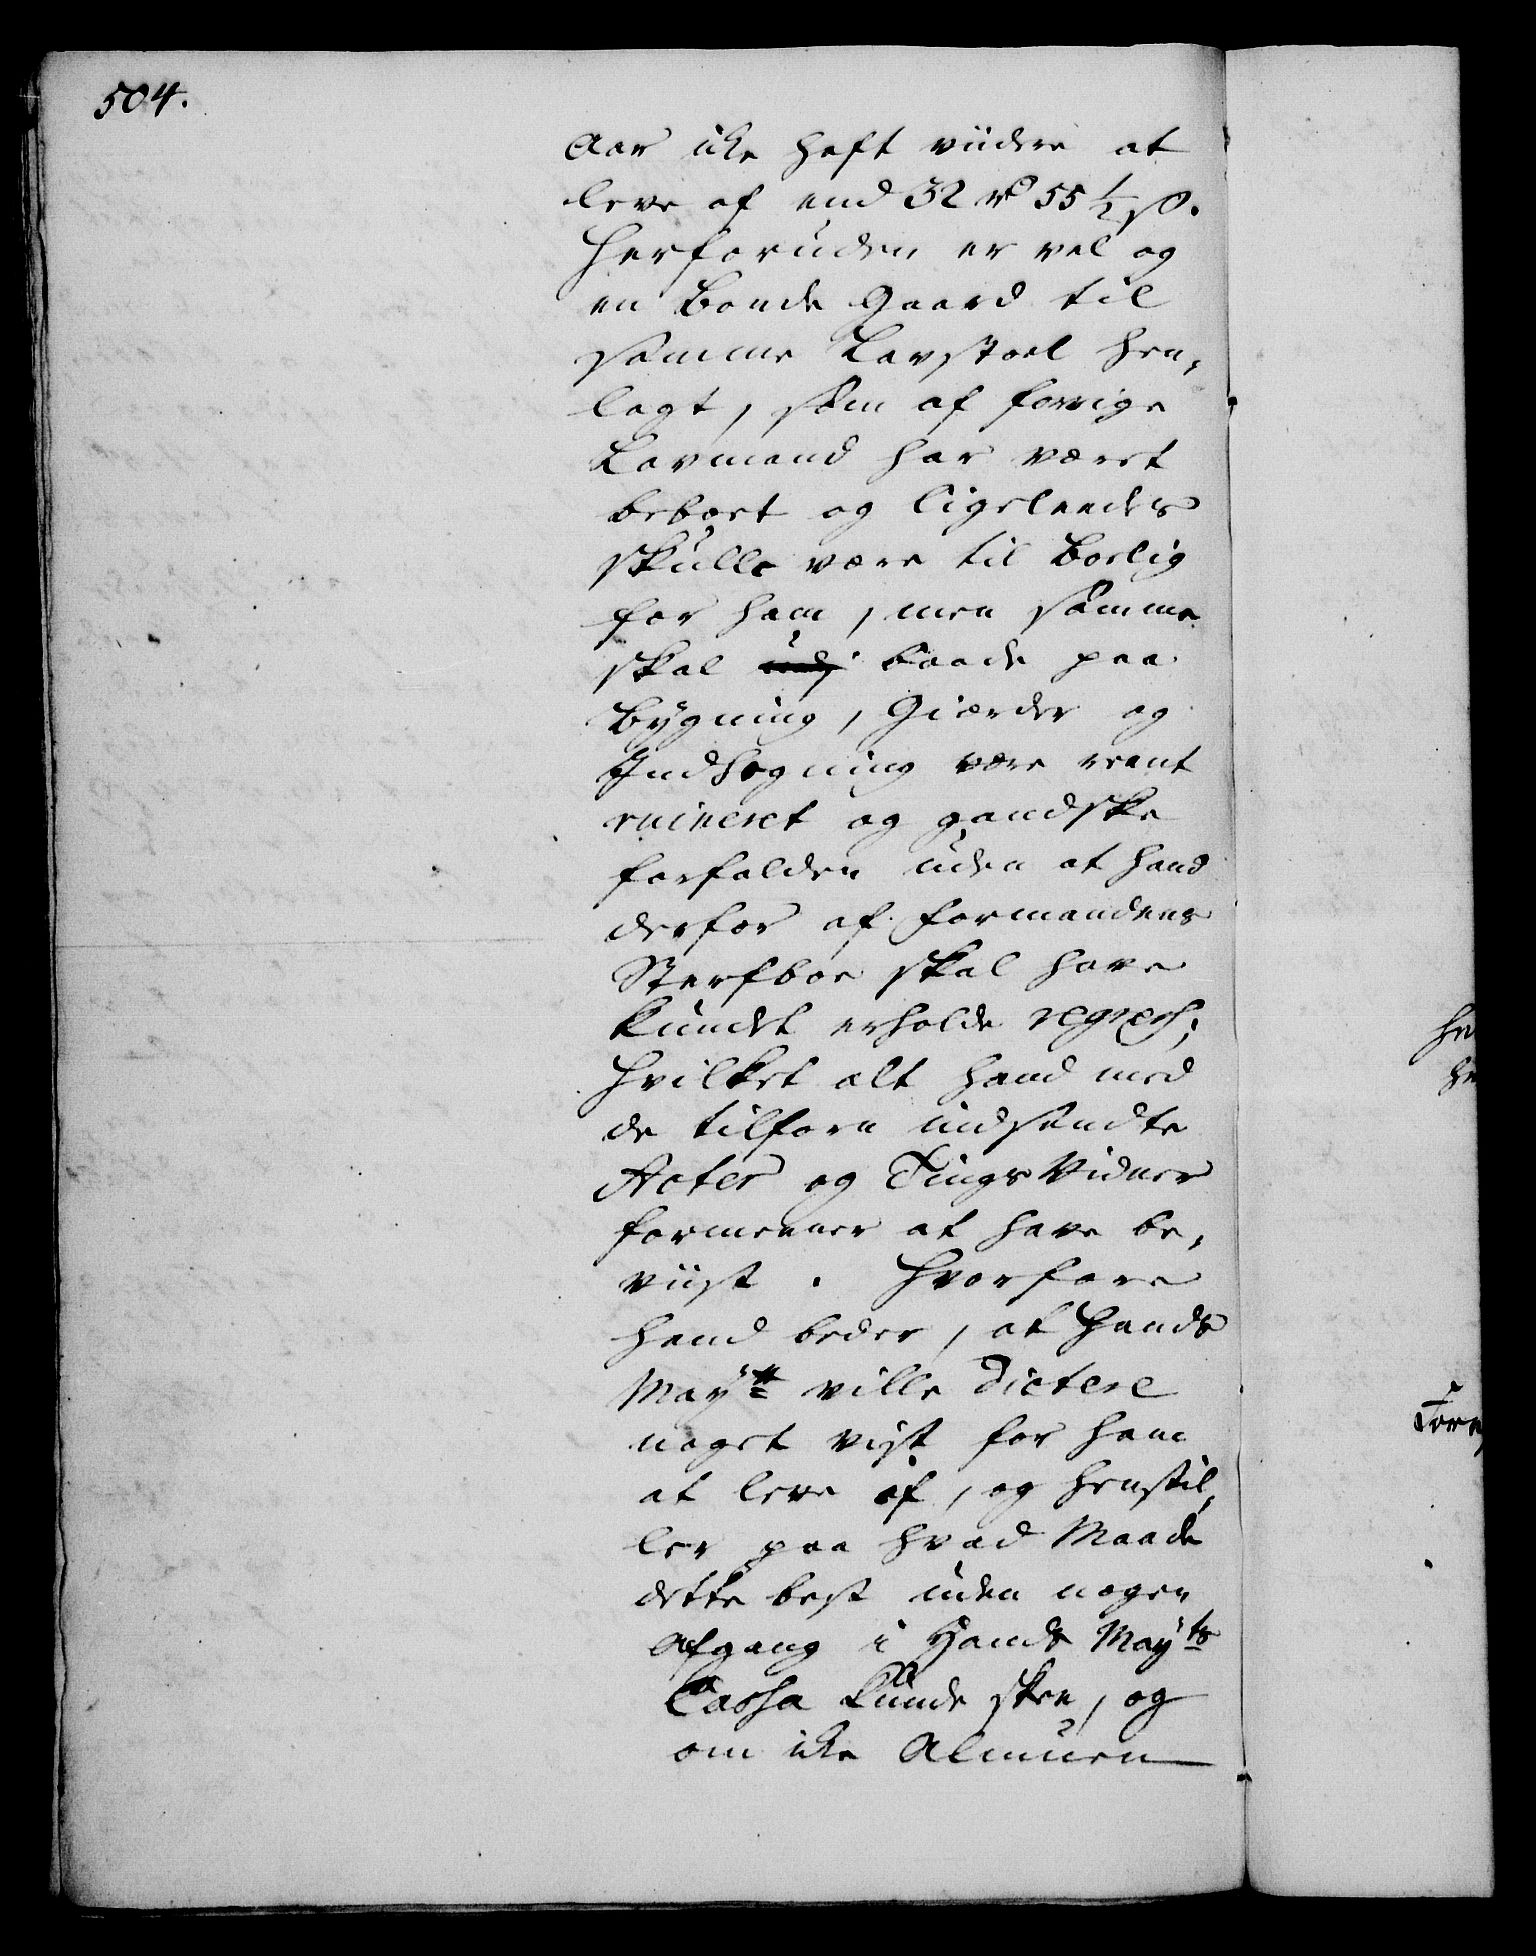 504.
Aar icke haft viidere at
leve af end 32 rd 55 ½ ß.
Herforuden er vel og
en Bonde Gaard til
samme Lavstoel hen,
lagt, som af forrige
Lavmand har været
beboet og ligeleedes
skulle være til Boelig
for ham, men samme
skal baade paa
Bygning, Gierder og
Indhegning være reent
ruineret og gandske
forfalden uden at hand
derfor af Formandens
Sterfboe skal have
kundet erholde regress;
hvilket alt hand med
de tilforn indsendte
Acter og Tings Vidner
formeener at have be,
viist. Hvorfore
hand beder, at Hands
Mayᵗᵗ ville dictere
noget vist for ham
at leve af, og henstil,
ler paa hvad Maade
dette best uden nogen
Afgang i Hands Mayᵗˢ
Cassa kunde skee, og
om icke Almuen